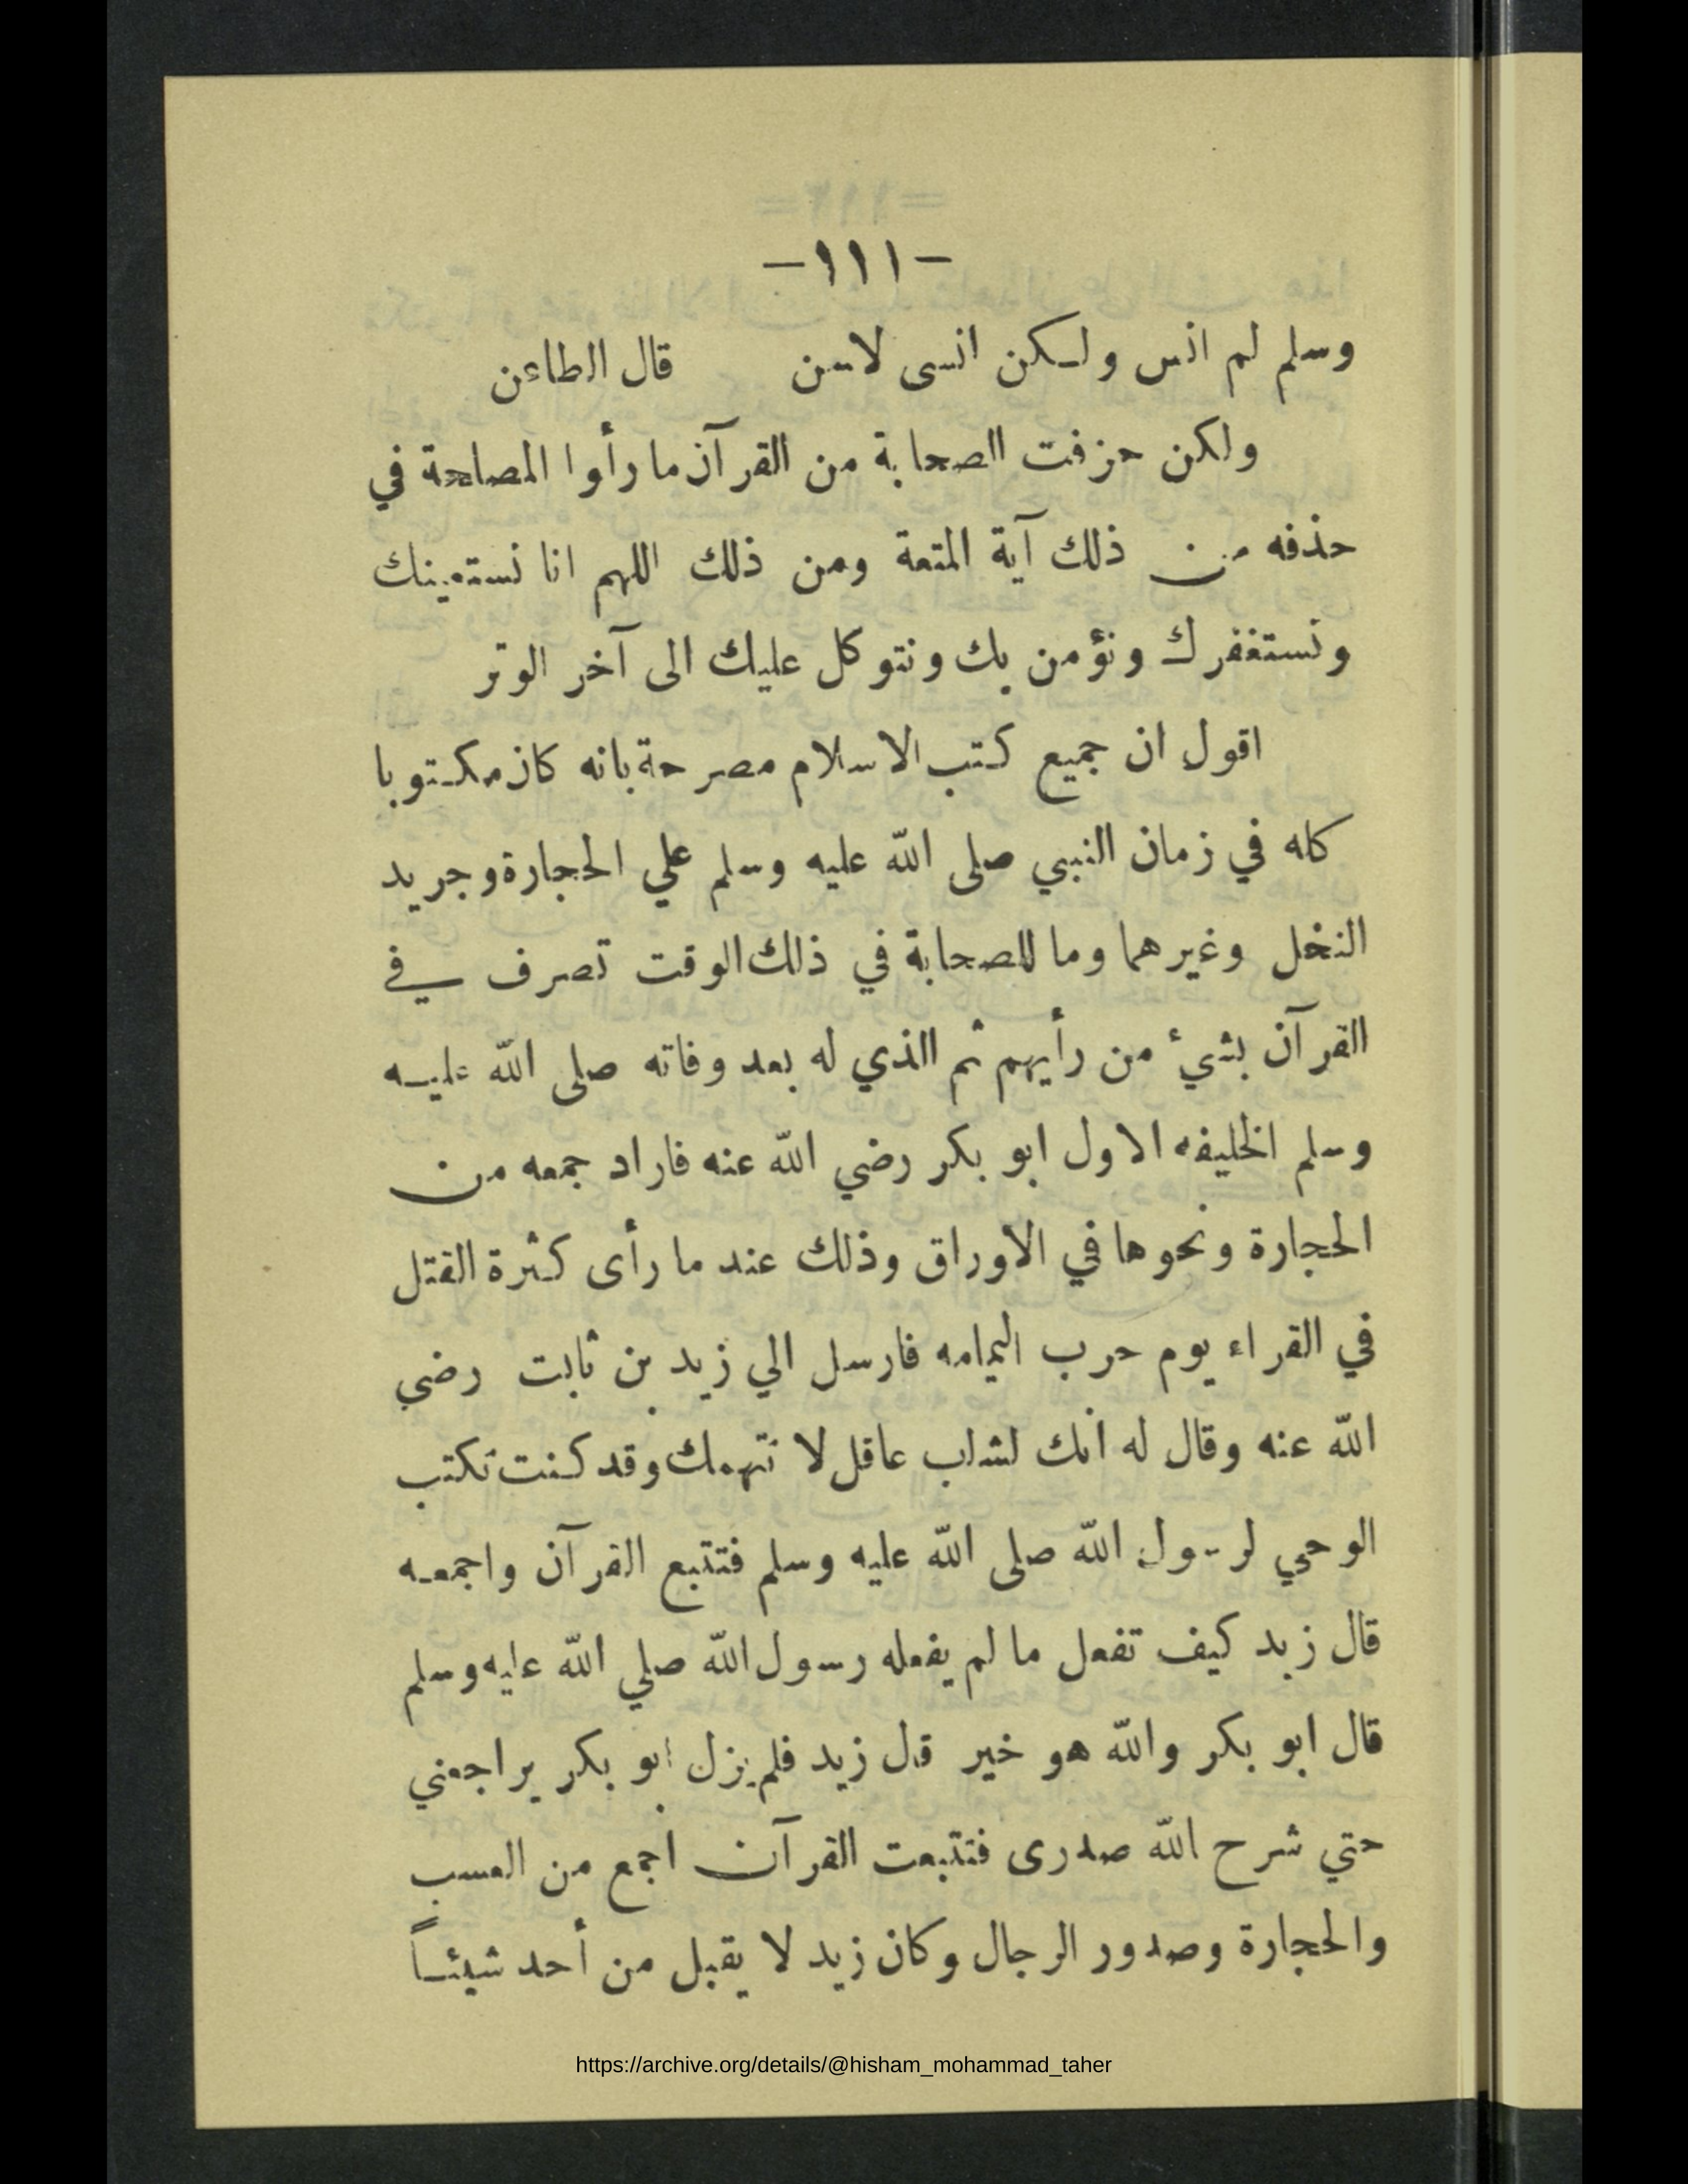 -١١١-
وسلم لم انس ولكن انسى لاسن قال الطاعن
ولكن حزفت الصحابة من القرآن ما رأوا المصاحة في
حذفه من ذلك آية المتعة ومن ذلك اللهم انا نستعينك
ونستغفرك ونؤمن بك ونتوكل عليك الى آخر الوتر
اقول ان جميع كتب الاسلام مصرحة بانه كان مكتوبا
كله في زمان النبي صلى الله عليه وسلم علي الحجارة وجريد
النخل وغيرهما وما للصحابة في ذلك الوقت تصرف في
القرآن بشئ من رأيهم ثم الذي له بعد وفاته صلى الله عليه
وسلم الخليفه الاول ابو بكر رضي الله عنه فاراد جمعه من
الحجارة ونحوها في الاوراق وذلك عند ما رأى كثرة القتل
في القراء يوم حرب اليمامه فارسل الي زيد بن ثابت رضي
الله عنه وقال له انك لشاب عاقل لا نتهمك وقد كنت تكتب
الوحي لرسول الله صلى الله عليه وسلم فتتبع القرآن واجمعه
قال زيد كيف تفعل ما لم يفعله رسول الله صلي الله عليه وسلم
قال ابو بكر والله هو خير قال زيد فلم يزل ابو بكر يراجعني
حتي شرح الله صدرى فتتبعت القرآن اجمع من العسب
والحجارة وصدور الرجال وكان زيد لا يقبل من أحد شيئاً
https://archive.org/details/@hisham_mohammad_taher